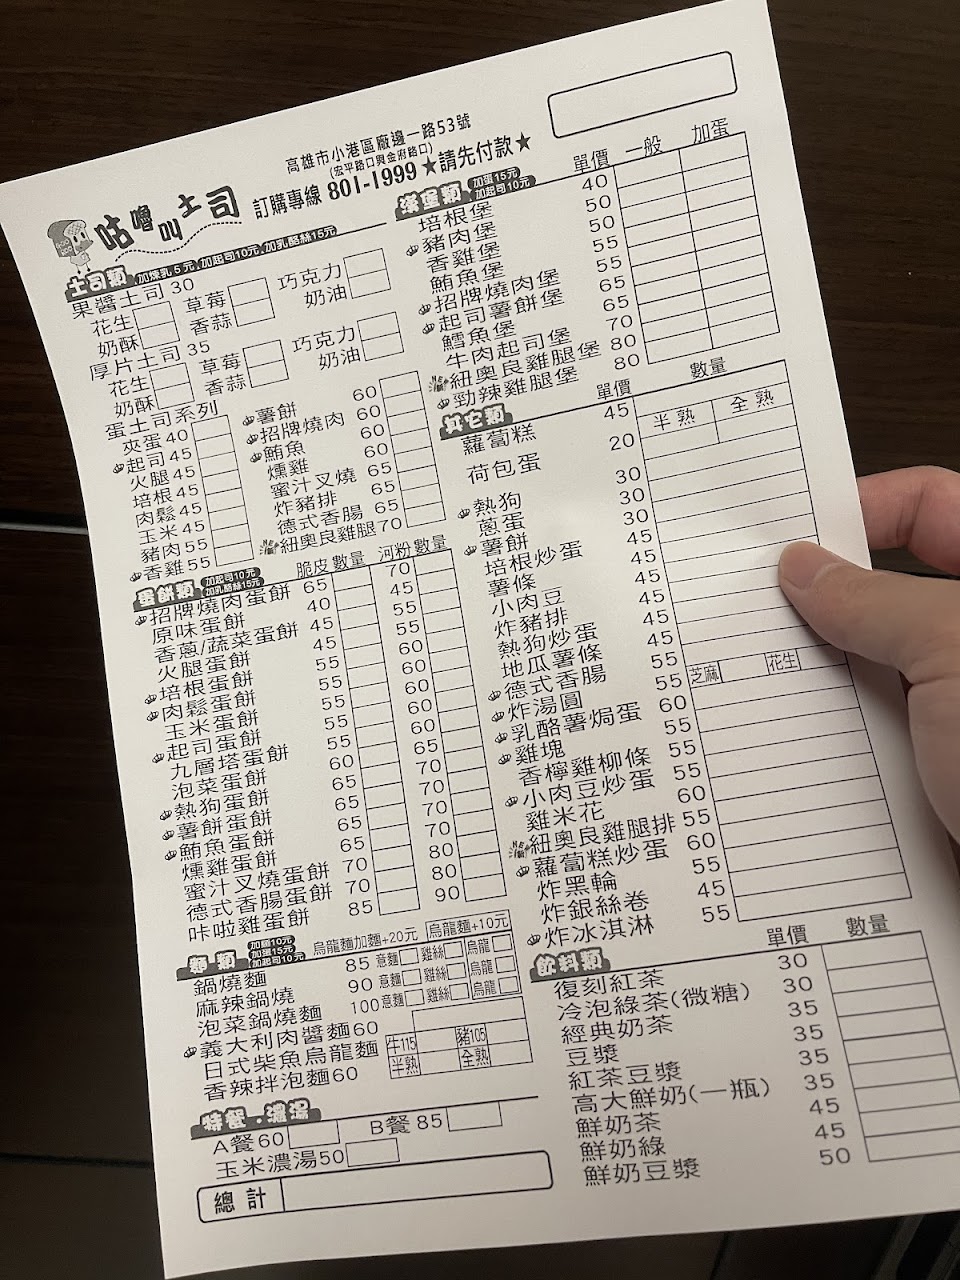 高雄市小港區廠邊一路53號
(宏平路口與金府路口)
訂購專線 801-1999 ★請先付款★
咕嚕叫土司
土司類 加煉乳5元 加起司10元 加乳酪絲15元
果醬土司 30
花生 草莓 巧克力
奶酥 香蒜 奶油
厚片土司 35
花生 草莓 巧克力
奶酥 香蒜 奶油
蛋土司系列
夾蛋 40
起司 45
火腿 45
培根 45
肉鬆 45
玉米 45
豬肉 55
香雞 55
薯餅 60
招牌燒肉 60
鮪魚 60
燻雞 60
蜜汁叉燒 65
炸豬排 65
德式香腸 65
NEW 紐奧良雞腿 70
蛋餅類 加起司10元 加乳酪絲15元 脆皮 數量 河粉 數量
招牌燒肉蛋餅 65 70
原味蛋餅 40 45
香蔥/蔬菜蛋餅 45 55
火腿蛋餅 45 60
培根蛋餅 55 60
肉鬆蛋餅 55 60
玉米蛋餅 55 60
起司蛋餅 55 60
九層塔蛋餅 55 65
泡菜蛋餅 60 70
熱狗蛋餅 65 70
薯餅蛋餅 65 70
鮪魚蛋餅 65 70
燻雞蛋餅 65 70
蜜汁叉燒蛋餅 70 80
德式香腸蛋餅 70 80
咔啦雞蛋餅 85 90
麵類 加蛋15元 加起司10元 烏龍麵加麵+20元 烏龍麵+10元
鍋燒麵 85 意麵 雞絲 烏龍
麻辣鍋燒 90 意麵 雞絲 烏龍
泡菜鍋燒麵 100 意麵 雞絲 烏龍
義大利肉醬麵 60
日式柴魚烏龍麵 牛115 豬105
香辣拌泡麵 60 半熟 全熟
特餐.濃湯
A餐 60 B餐 85
玉米濃湯 50
總計
漢堡類 加蛋15元 加起司10元 單價 一般 加蛋
培根堡 40
豬肉堡 50
香雞堡 50
鮪魚堡 55
招牌燒肉堡 55
起司薯餅堡 65
鱈魚堡 65
牛肉起司堡 70
NEW 紐奧良雞腿堡 80
勁辣雞腿堡 80
其它類 單價 數量
蘿蔔糕 45 半熟 全熟
荷包蛋 20
熱狗 30
蔥蛋 30
薯餅 30
培根炒蛋 45
薯條 45
小肉豆 45
炸豬排 45
熱狗炒蛋 45
地瓜薯條 45
德式香腸 55
炸湯圓 55 芝麻 花生
乳酪薯焗蛋 60
雞塊 55
香檸雞柳條 55
小肉豆炒蛋 55
雞米花 60
NEW 紐奧良雞腿排 55
蘿蔔糕炒蛋 60
炸黑輪 55
炸銀絲卷 45
炸冰淇淋 55
飲料類 單價 數量
復刻紅茶 30
冷泡綠茶(微糖) 30
經典奶茶 35
豆漿 35
紅茶豆漿 35
高大鮮奶(一瓶) 35
鮮奶茶 45
鮮奶綠 45
鮮奶豆漿 50